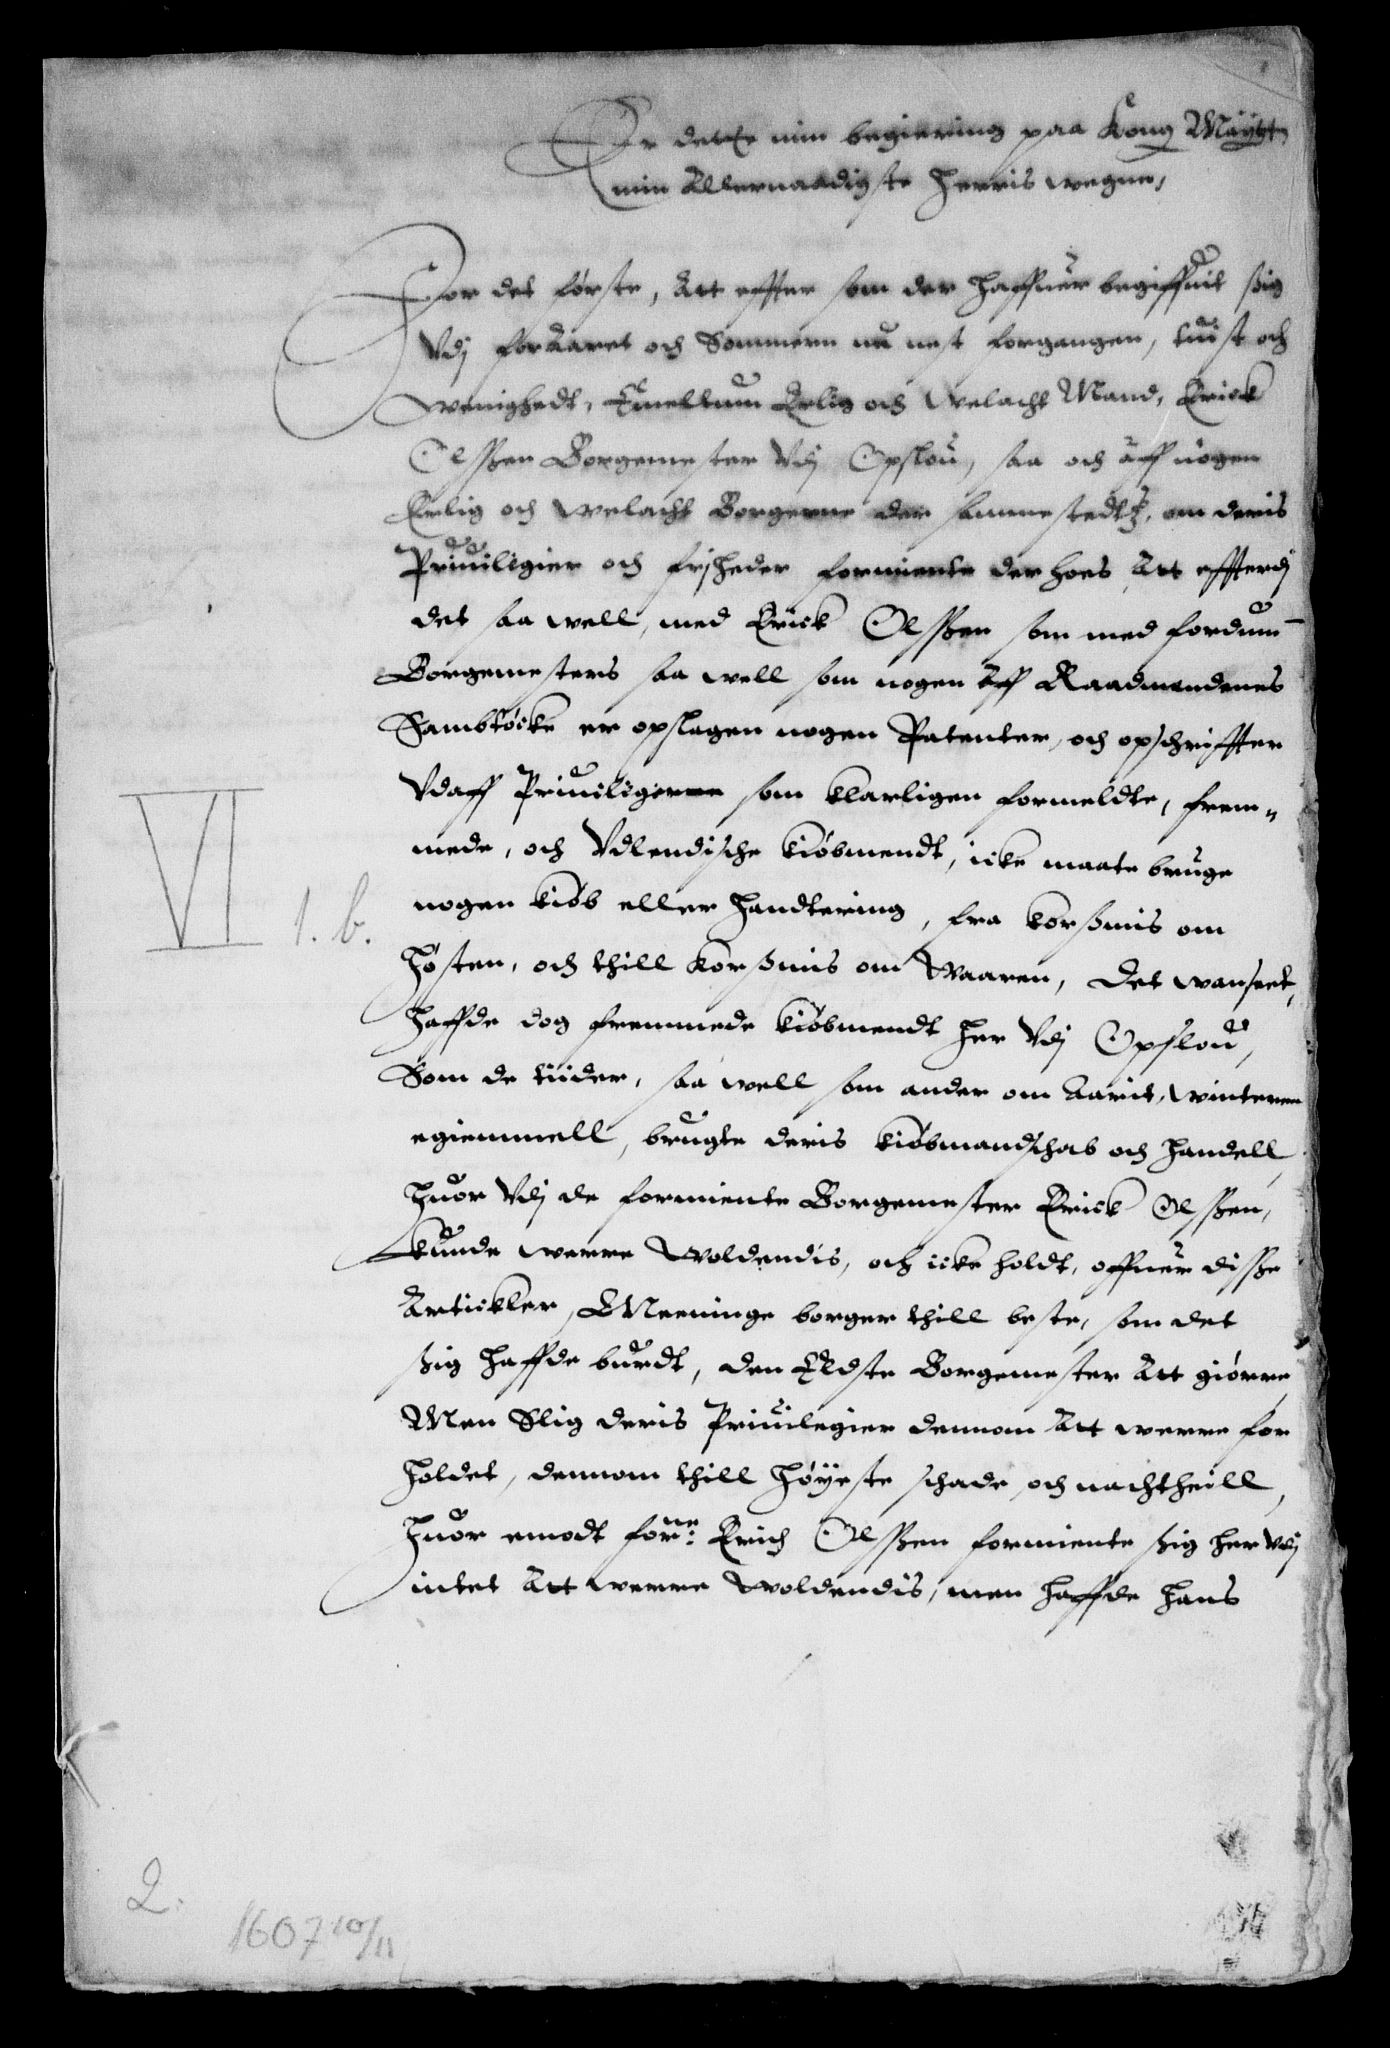 Er dette min begiering paa Kong Maÿtt
min Allernaadigste herris wegne,
For det første, Att effter som der haffuer begiffuit sig
Vdj foraaret och Sommeren nu nest forgangen, tuist och
wenighedt, Emellum Erlig och welacht Mand, Erick
Olssen Borgemester Vdj Opslou, saa och aff nogen
Erlig och welacht Borgerne der sammestedtz, om deris
Priuiligier och frjheder formiente der hoes Att effterdj
det saa well, med Erick Olssen som med fordum
Borgemesters saa well som nogen Aff Raadmendenes
Sambtÿcke er opslagen nogen Patenter, och opschriffter
Vdaff Priuiligerne som klarligen formeldte, frem„
mede, och Vdlendische kiøbmendt, icke maate bruge
nogen kiøb eller handtering, fra korssmis om
høsten, och thill korssmis om Waaren, Det wanseet,
haffde dog fremmede kiøbmendt her Vdj Opslou,
Som de tiider, saa well som ander om Aarit, winteren
egiemmell, brugte deris kiøbmandschab och handell
huor Vdj de formiente Borgemester Erick Olssen,
kunde werre Woldendis, och icke holdt, offuer disse
Artickler, Meeninge borger thill beste, som det
sig haffde burdt, den Eldste Borgemester Att giørre
Men Slig deris Priuilegier dennom Att werre for
holdet, dennom thill høÿeste schade, och nachtheill,
huor emodt forne: Erich Olssen formiente sig her Vdj
intet Att werre Woldendis, men haffde hans
VI 1. b.
2.
1607 10/11